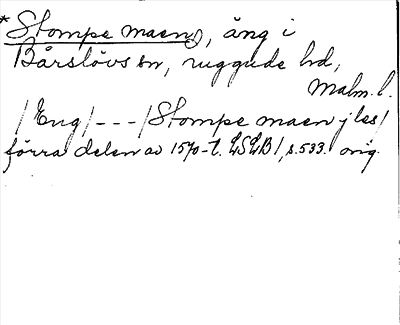 * Stompe maen), äng i
Bårslövs sn, ruggude hd,
Malm. l.
/Eng/ - - - /Stompe maen j les/
förra delen av 1570-t. LSLB1, s. 533. orig.